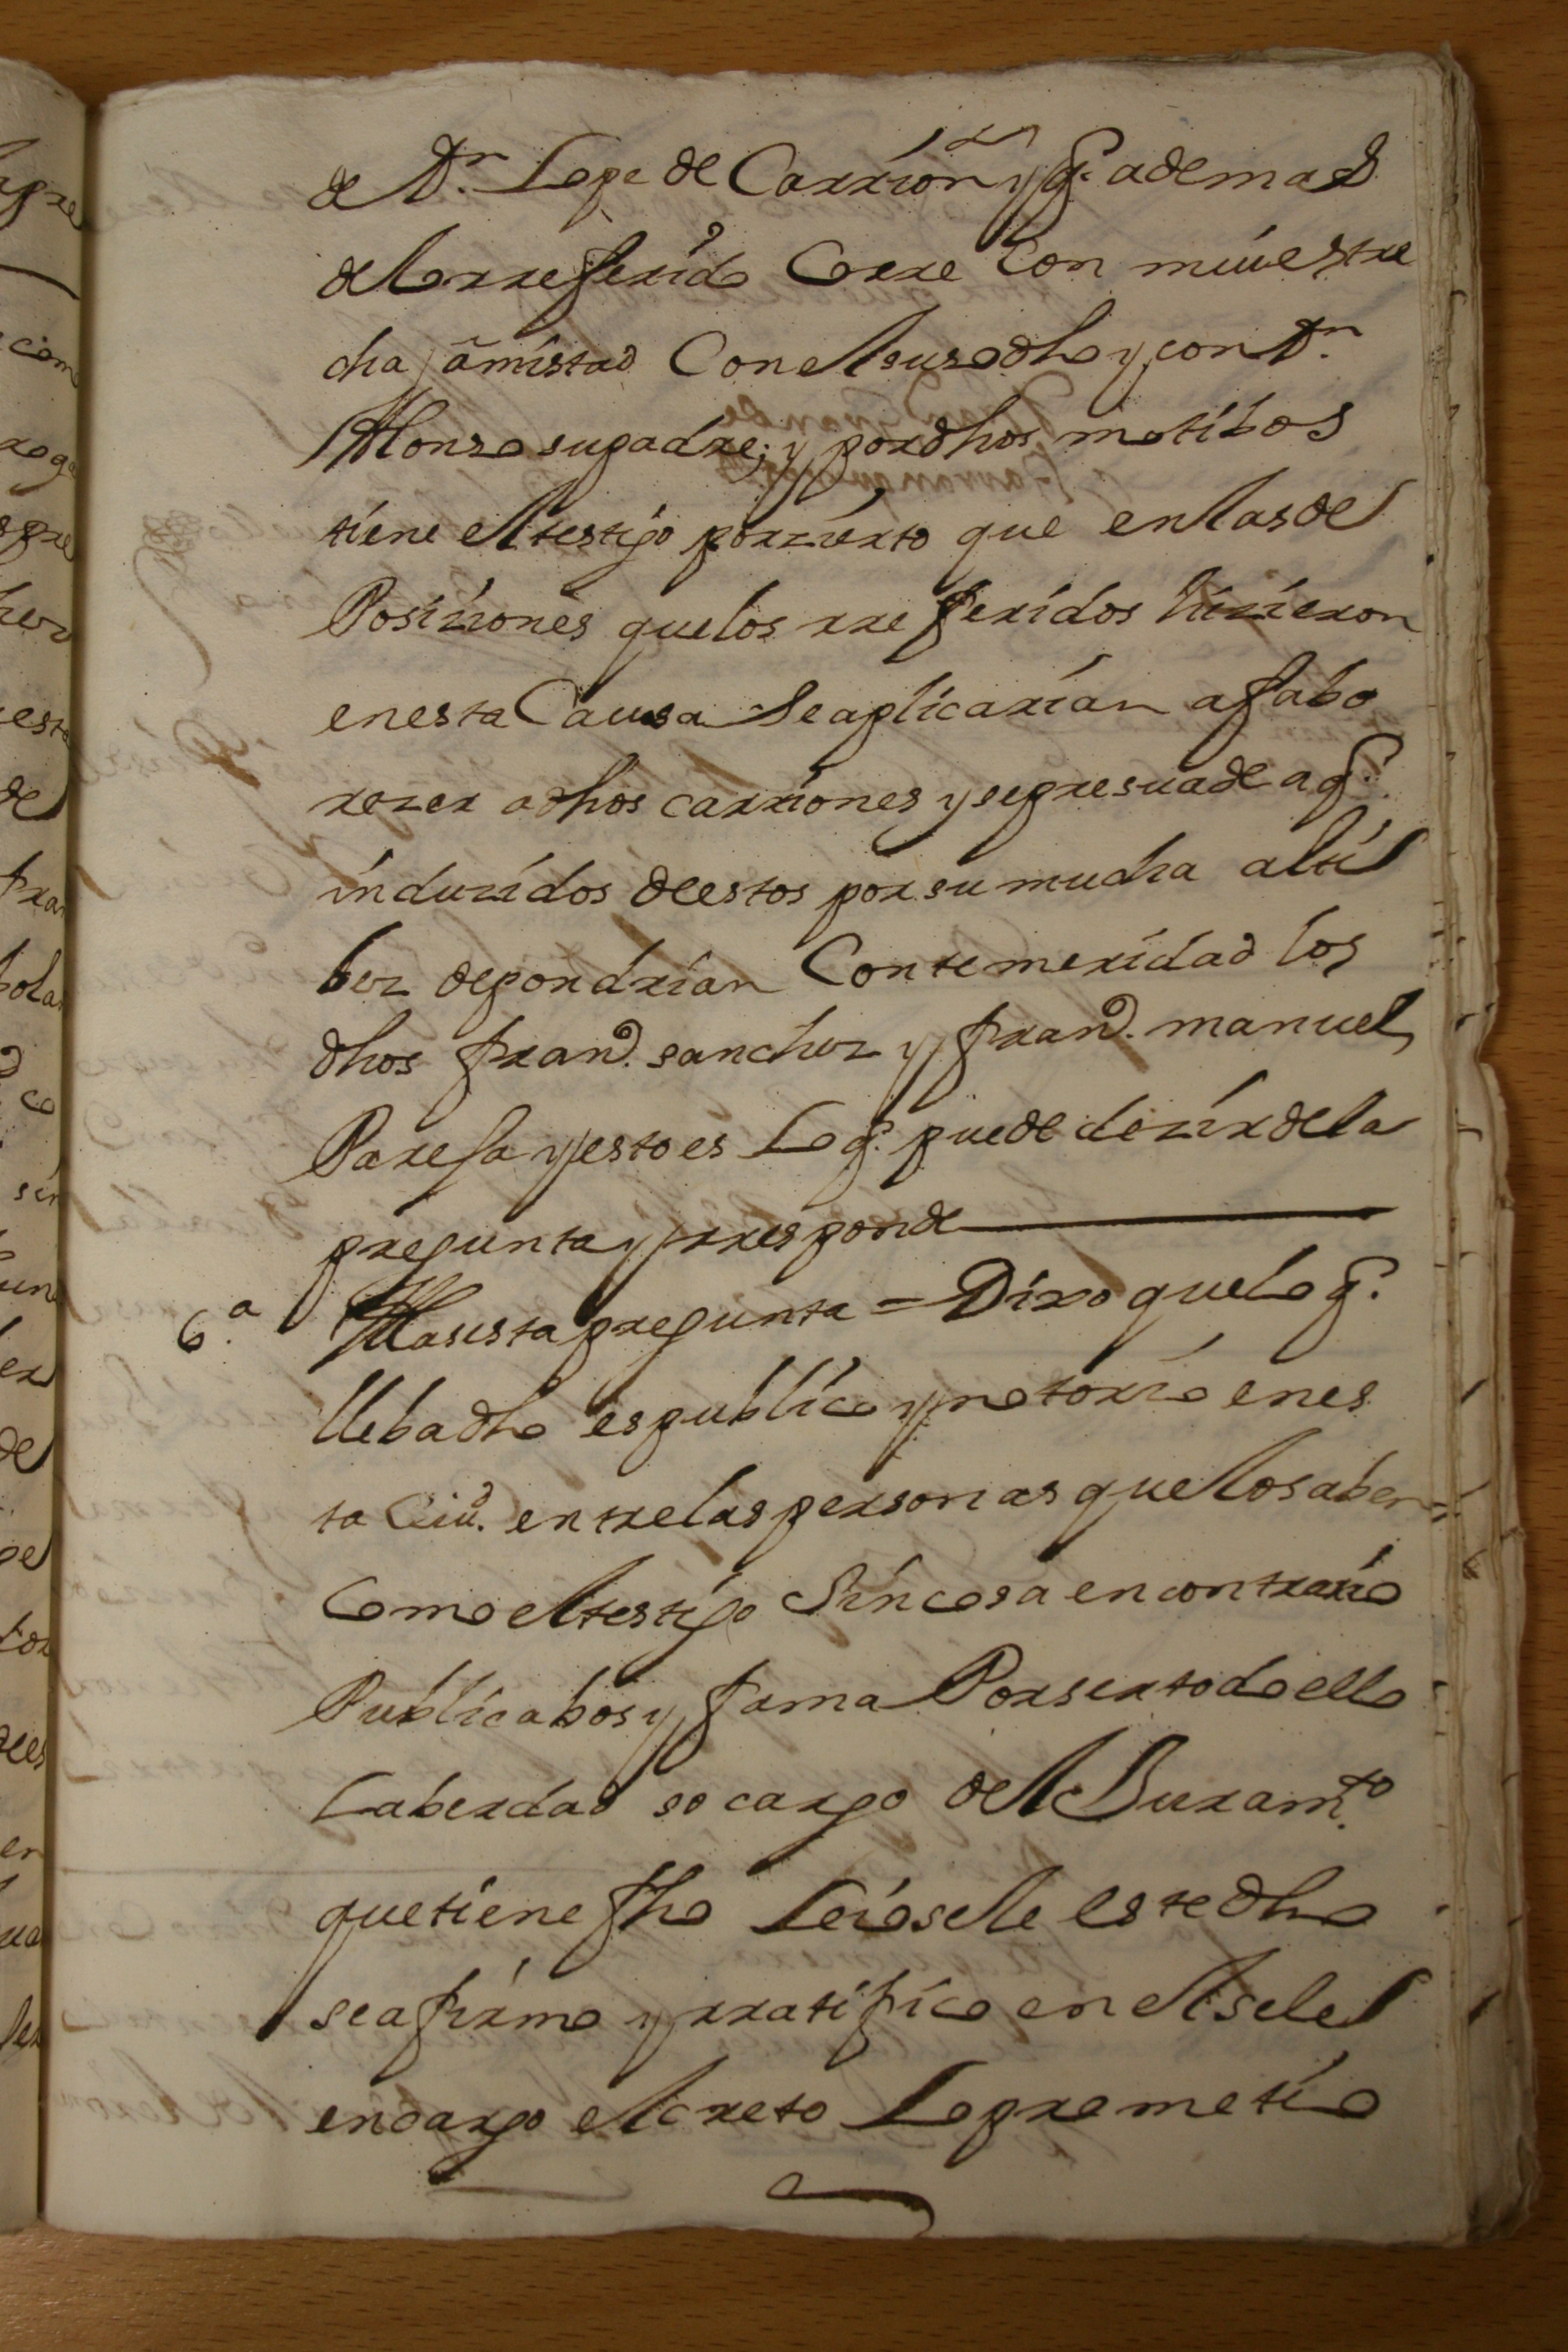 de Dn. Lope de Carrion y q.e ademas
de lo rreferido Corre Con mui estre
cha amistad Con el susodho y con Dn.
Alonso su padre; y por dhos motibos
tiene el testigo por zierto que en las de
Posiziones que los rreferidos hizieron
en esta Causa se aplicarian a fabo
rezer a dhos carriones y se presuade a q.e
induzidos de estos por su mucha alti
bez depondrian Con temeridad los
dhos fran.co sanchez y fran.co manuel
Pareja y esto es Lo q.e puede dezir de la
pregunta y rresponde
6.a A la sesta pregunta = Dixo que lo q.e
lleba dho es publico y notorio en es
ta Ciu.d entre las personas que lo saben
Como el testigo Sin cosa en contrario
Publica bos y fama Por ser todo ello
La berdad so cargo del Juram.to
que tiene fho Leiosele este dho
se afirmo y rratifico en el sele
encargo el creto Lo prometio